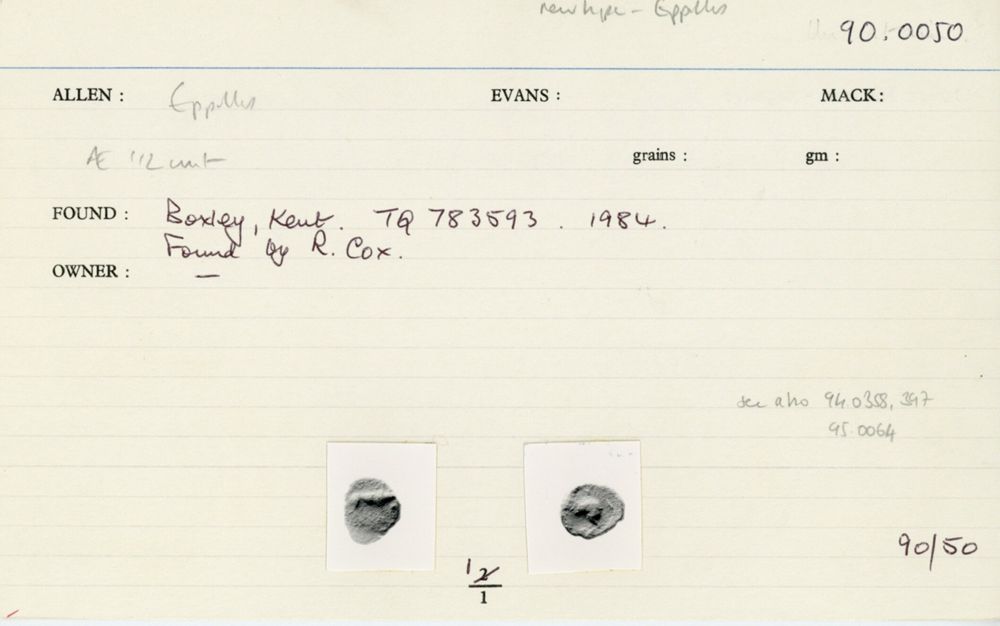 new type - Eppillus
90.0050
ALLEN : Eppillus EVANS : MACK:
Æ 1/2 unit grains : gm :
FOUND : Boxley, Kent. TQ 783593 . 1984.
Found by R. Cox.
OWNER : —
see also 94.0358, 397
95.0064
90/50
1 2
1